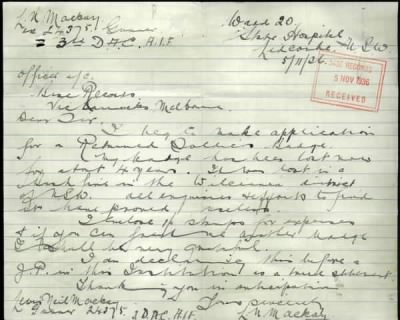 L. N. Mackay
No 24375. Gunner
= 3rd D.A.C. A.I.F
Ward 20
State Hospital
Lidcombe. N.S.W.
5/11/36.
BASE RECORDS
5 NOV 1936
RECEIVED
Officer i/c.
Base Records
Vic Barracks Melbourne.
Dear Sir,
I beg to make application
for a Returned Soldiers Badge.
My badge has been lost now
for about 4 years. It was lost in a
in the Wilcannia district
of N.S.W. all enquiries & efforts to find
have proved useless.
I enclose stamps for expenses
& if you can grant me another badge
I shall be very grateful.
I am declaring this before a
J.P. in this Institution is a true statement.
Thanking you in anticipation
Yours sincerely
Lewis Neil Mackay
Gunner 24375. 3 D.A.C. A.I.F.
L. N. Mackay